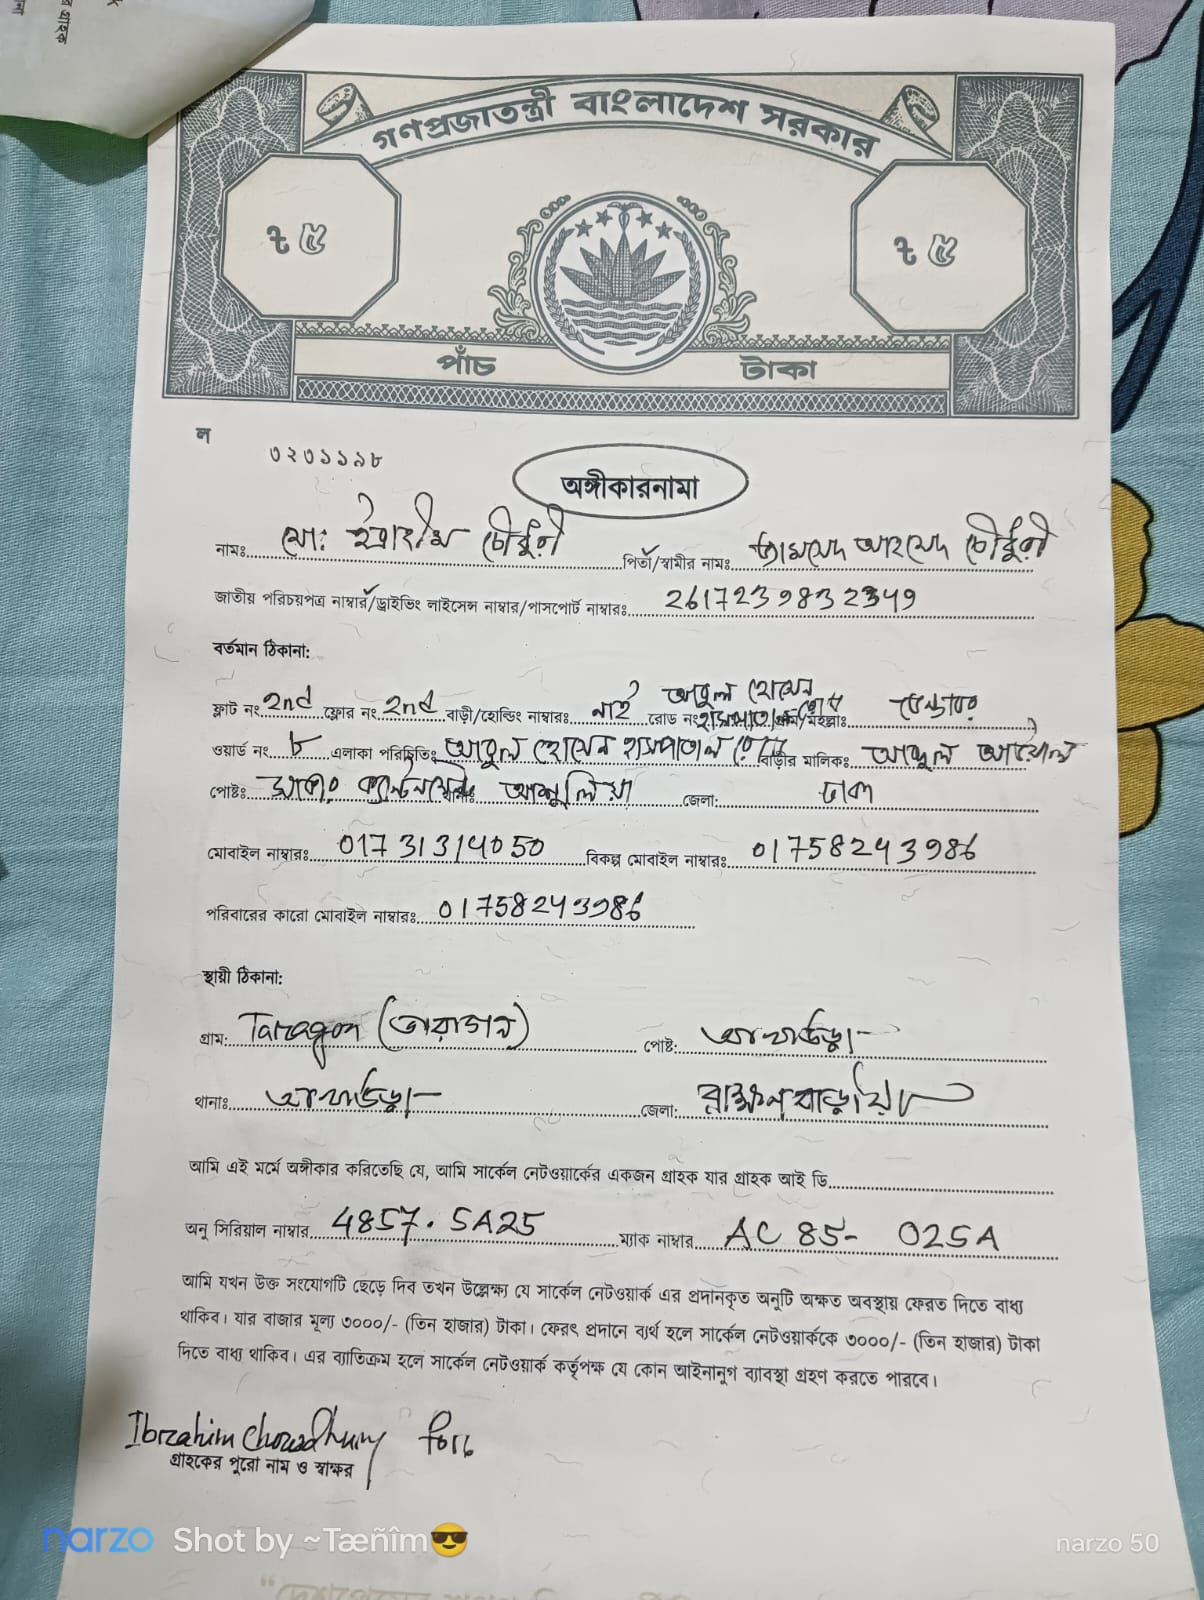 গণপ্রজাতন্ত্রী বাংলাদেশ সরকার
ট ৫ ট ৫
পাঁচ টাকা
ল
৩২৩১১৯৮
অঙ্গীকারনামা
নামঃ মো: ইব্রাহীম চৌধুরী পিতা/স্বামীর নামঃ জামসেদ আহমেদ চৌধুরী
জাতীয় পরিচয়পত্র নাম্বার/ড্রাইভিং লাইসেন্স নাম্বার/পাসপোর্ট নাম্বারঃ 2617239832349
বর্তমান ঠিকানা:
ফ্লাট নং 2nd ফ্লোর নং 2nd বাড়ী/হোল্ডিং নাম্বারঃ নাই রোড নংঃ আবুল হোসেন হাসপাতাল রোড গ্রাম/মহল্লাঃ
ওয়ার্ড নং ৮ এলাকা পরিচিতিঃ আবুল হোসেন হাসপাতাল রোড বাড়ীর মালিকঃ আব্দুল আউয়াল
পোষ্টঃ সাভার ক্যান্টনমেন্ট থানাঃ আশুলিয়া জেলা: ঢাকা
মোবাইল নাম্বারঃ 01731314050 বিকল্প মোবাইল নাম্বারঃ 01758243986
পরিবারের কারো মোবাইল নাম্বারঃ 01758243986
স্থায়ী ঠিকানা:
গ্রাম: Taragon (তারাগন) পোষ্ট: আখাউড়া
থানাঃ আখাউড়া জেলা: ব্রাহ্মণবাড়ীয়া
আমি এই মর্মে অঙ্গীকার করিতেছি যে, আমি সার্কেল নেটওয়ার্কের একজন গ্রাহক যার গ্রাহক আই ডি
অনু সিরিয়াল নাম্বার 4857.5A25 ম্যাক নাম্বার AC 85- 025A
আমি যখন উক্ত সংযোগটি ছেড়ে দিব তখন উল্লেক্ষ্য যে সার্কেল নেটওয়ার্ক এর প্রদানকৃত অনুটি অক্ষত অবস্থায় ফেরত দিতে বাধ্য
থাকিব। যার বাজার মূল্য ৩০০০/- (তিন হাজার) টাকা। ফেরৎ প্রদানে ব্যর্থ হলে সার্কেল নেটওয়ার্ককে ৩০০০/- (তিন হাজার) টাকা
দিতে বাধ্য থাকিব। এর ব্যাতিক্রম হলে সার্কেল নেটওয়ার্ক কর্তৃপক্ষ যে কোন আইনানুগ ব্যাবস্থা গ্রহণ করতে পারবে।
Ibrahim Chowdhury
গ্রাহকের পুরো নাম ও স্বাক্ষর
narzo Shot by ~Tæñîm😎 narzo 50